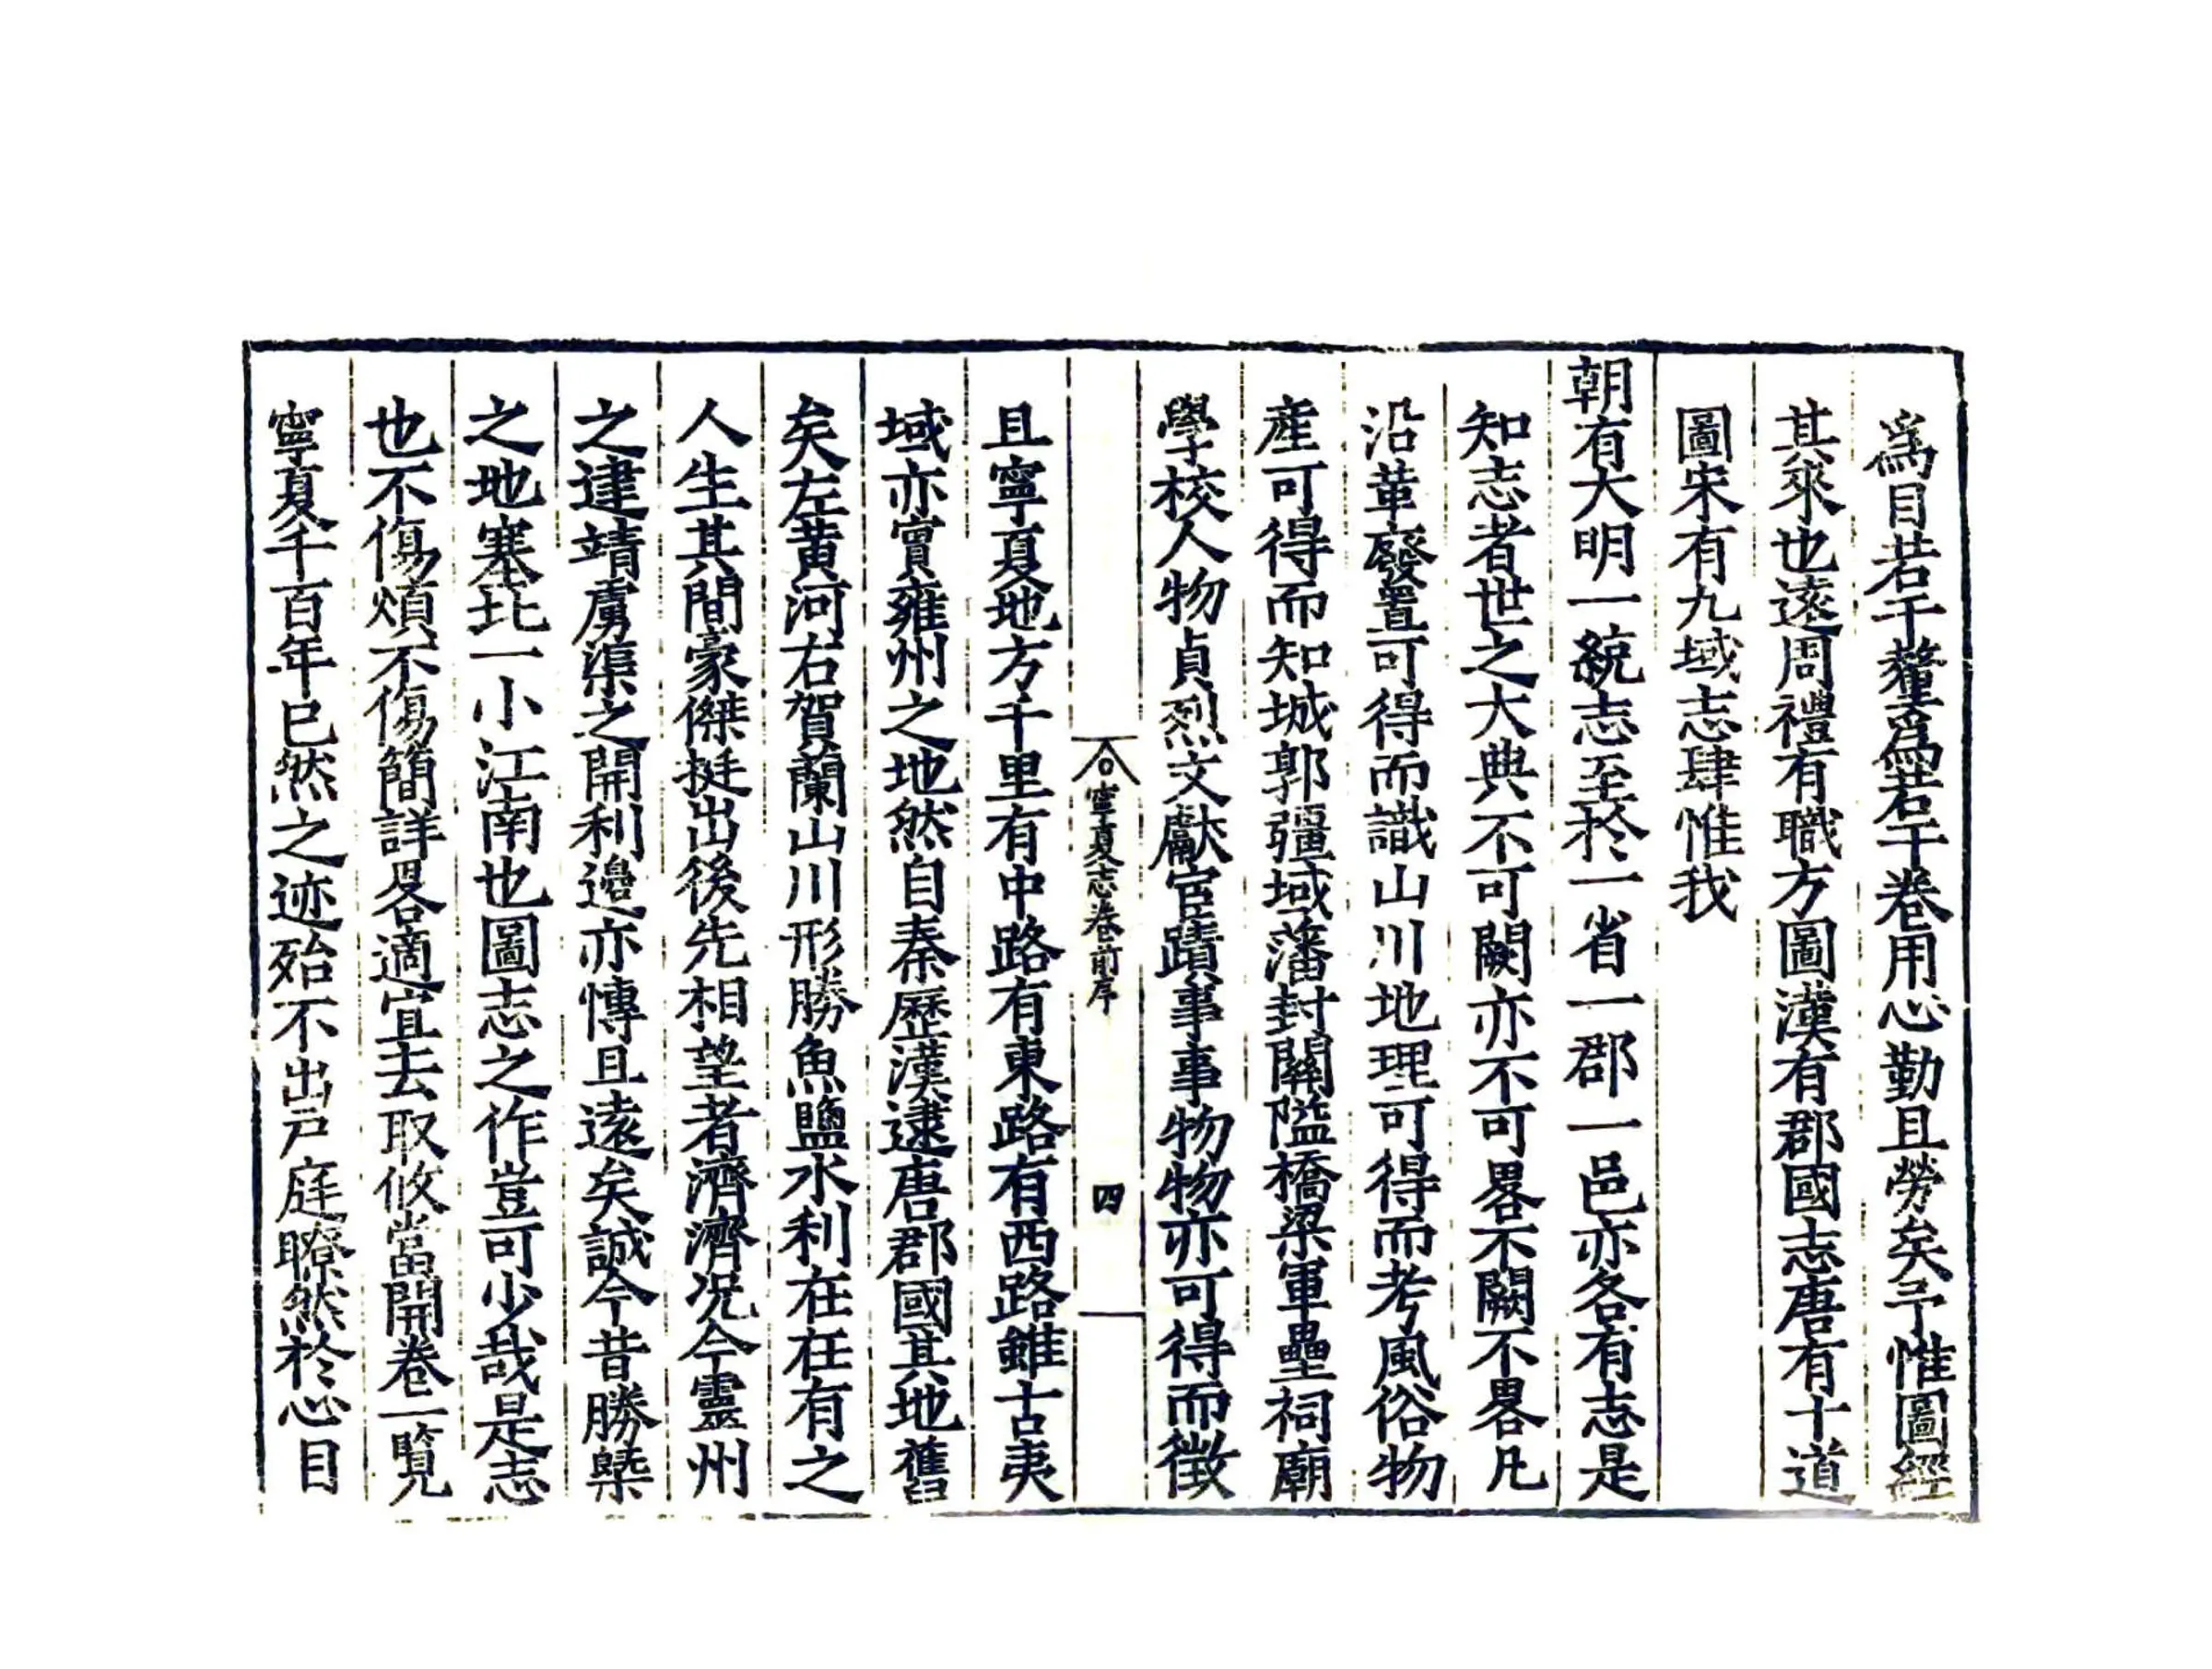 爲目若干釐爲若干卷用心勤且勞矣予惟圖經
其來也遠周禮有職方圖漢有郡國志唐有十道
圖宋有九域志肆惟我
朝有大明一統志至於一省一郡一邑亦各有志是
知志者世之大典不可闕亦不可畧不闕不畧凡
沿革廢置可得而識山川地理可得而考風俗物
産可得而知城郭疆域藩封關隘橋梁軍壘祠廟
學校人物貞烈文獻宦蹟事事物物亦可得而徵
寧夏志卷前序 四
且寧夏地方千里有中路有東路有西路雖古夷
域亦實雍州之地然自秦歷漢逮唐郡國其地舊
矣左黃河右賀蘭山川形勝魚鹽水利在在有之
人生其間豪傑挺出後先相望者濟濟况今靈州
之建靖虜渠之開利邊亦愽且遠矣誠今昔勝槩
之地塞北一小江南也圖志之作豈可少哉是志
也不傷煩不傷簡詳畧適宜去取攸當開卷一覧
寧夏千百年已然之迹殆不出戸庭瞭然於心目